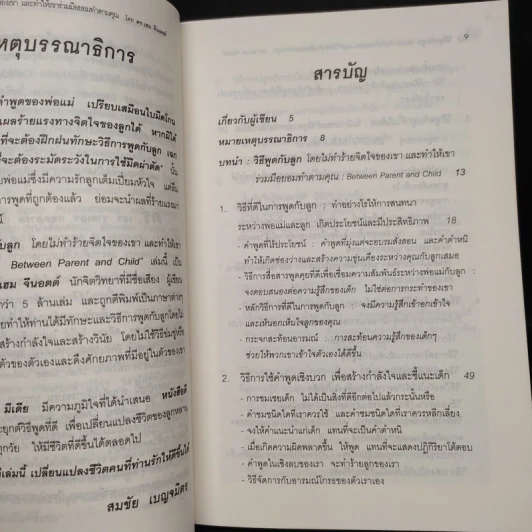 องเขา และทำให้เขาร่วมมือยอมทำตามคุณ โดย ดร.เฮม จีนอตต์
หตุบรรณาธิการ
คำพูดของพ่อแม่ เปรียบเสมือนใบมีดโกน
ผลร้ายแรงทางจิตใจของลูกได้ หากมิได้
ที่จะต้องฝึกฝนทักษะวิธีการพูดกับลูก
ที่จะต้องระมัดระวังในการใช้มีดผ่าตัด"
บพ่อแม่ซึ่งมีความรักลูกเต็มเปี่ยมหัวใจ แต่
การพูดที่ถูกต้องแล้ว ย่อมจะนำผลที่ร้ายแรงมา
กับลูก โดยไม่ทำร้ายจิตใจของเขา และทำให้เขา
Between Parent and Child" เล่มนี้ เป็น
เฮม จีนอตต์ นักจิตวิทยาที่มีชื่อเสียง ผู้เขียน
กว่า 5 ล้านเล่ม และถูกตีพิมพ์เป็นภาษาต่างๆ
ยทำให้ท่านได้มีทักษะและวิธีการพูดกับลูกโดย
สร้างกำลังใจ และสร้างวินัย โดยไม่ใช้วิธีข่มขู่หรือ
ของตัวเองและดึงศักยภาพที่มีอยู่ในตัวของเขา
มีเดีย มีความภูมิใจที่ได้นำเสนอ หนังสือดี
ยุกต์วิธีพูดที่ดี เพื่อเปลี่ยนแปลงชีวิตของลูกหลาน
ทุกวัย ให้มีชีวิตที่ดีขึ้นได้ตลอดไป
เล่มนี้ เปลี่ยนแปลงชีวิตคนที่ท่านรักให้ดีขึ้นได้
สมชัย เบญจมิตร
9
สารบัญ
เกี่ยวกับผู้เขียน 5
หมายเหตุบรรณาธิการ 8
บทนำ : วิธีพูดกับลูก โดยไม่ทำร้ายจิตใจของเขา และทำให้เขา
ร่วมมือยอมทำตามคุณ : Between Parent and Child 13
1. วิธีที่ดีในการพูดกับลูก : ทำอย่างไรให้การสนทนา
ระหว่างพ่อแม่และลูก เกิดประโยชน์และมีประสิทธิภาพ 18
- คำพูดที่ไร้ประโยชน์ : คำพูดที่มุ่งแต่จะอบรมสั่งสอน และคำตำหนิ
ทำให้เกิดช่องว่างและสร้างความขุ่นเคืองระหว่างคุณกับลูกเสมอ
- วิธีการสื่อสารพูดคุยที่ดีเพื่อเชื่อมความสัมพันธ์ระหว่างพ่อแม่กับลูก :
จงตอบสนองต่อความรู้สึกของเด็ก ไม่ใช่ต่อการกระทำของเขา
- หลักวิธีการที่ดีในการพูดกับลูก : จงมีความรู้สึกเข้าอกเข้าใจ
และเห็นอกเห็นใจลูกของคุณ
- กระจกสะท้อนอารมณ์ : การสะท้อนความรู้สึกของเด็กๆ
ช่วยให้พวกเขาเข้าใจตัวเองได้ดีขึ้น
2. วิธีการใช้คำพูดเชิงบวก เพื่อสร้างกำลังใจและชี้แนะเด็ก 49
- การชมเชยเด็ก ไม่ได้เป็นสิ่งที่ดีอีกต่อไปแล้วกระนั้นหรือ
- คำชมชนิดใดที่เราควรใช้ และคำชมชนิดใดที่เราควรหลีกเลี่ยง
- จงให้คำแนะนำแก่เด็ก แทนที่จะเป็นคำตำหนิ
- เมื่อเกิดความผิดพลาดขึ้น ให้พูด แทนที่จะแสดงปฏิกิริยาโต้ตอบ
- คำพูดในเชิงลบของเรา จะทำร้ายลูกของเรา
- วิธีจัดการกับอารมณ์โกรธของตัวเราเอง